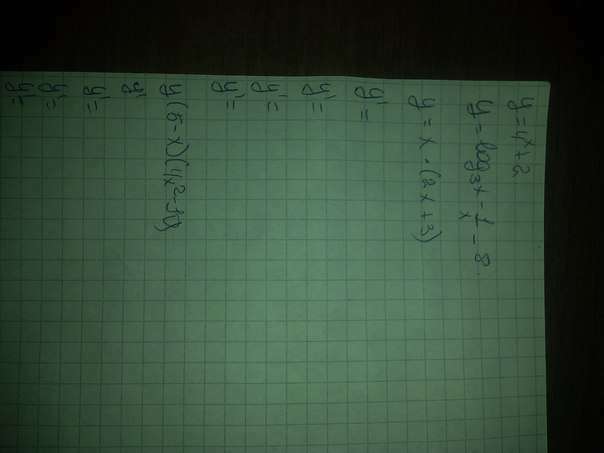 y = 4ˣ + 2
y = log₃x - 1/x - 8
y = x · (2x + 3)
y' =
y' =
y' =
y' =
y (5 - x)(4x² - 10)
y'
y' =
y' =
y' =